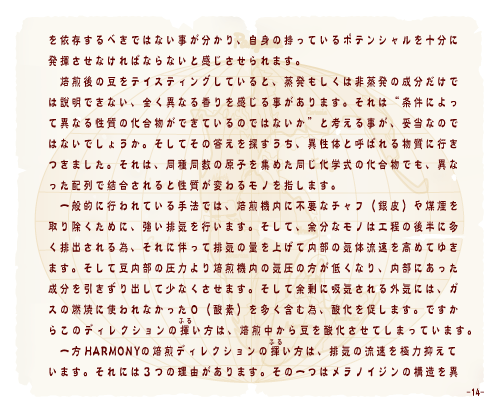 を依存するべきではない事が分かり、自身の持っているポテンシャルを十分に
発揮させなければならないと感じさせられます。
焙煎後の豆をテイスティングしていると、蒸発もしくは非蒸発の成分だけで
は説明できない、全く異なる香りを感じる事があります。それは“条件によっ
て異なる性質の化合物ができているのではないか”と考える事が、妥当なので
はないでしょうか。そしてその答えを探すうち、異性体と呼ばれる物質に行き
つきました。それは、同種同数の原子を集めた同じ化学式の化合物でも、異な
った配列で結合されると性質が変わるモノを指します。
一般的に行われている手法では、焙煎機内に不要なチャフ（銀皮）や煤煙を
取り除くために、強い排気を行います。そして、余分なモノは工程の後半に多
く排出される為、それに伴って排気の量を上げて内部の気体流速を高めてゆき
ます。そして豆内部の圧力より焙煎機内の気圧の方が低くなり、内部にあった
成分を引きずり出して少なくさせます。そして余剰に吸気される外気には、ガ
スの燃焼に使われなかったO（酸素）を多く含む為、酸化を促します。ですか
ふる
らこのディレクションの揮い方は、焙煎中から豆を酸化させてしまっています。
ふる
一方HARMONYの焙煎ディレクションの揮い方は、排気の流速を極力抑えて
います。それには３つの理由があります。その一つはメラノイジンの構造を異
-14-